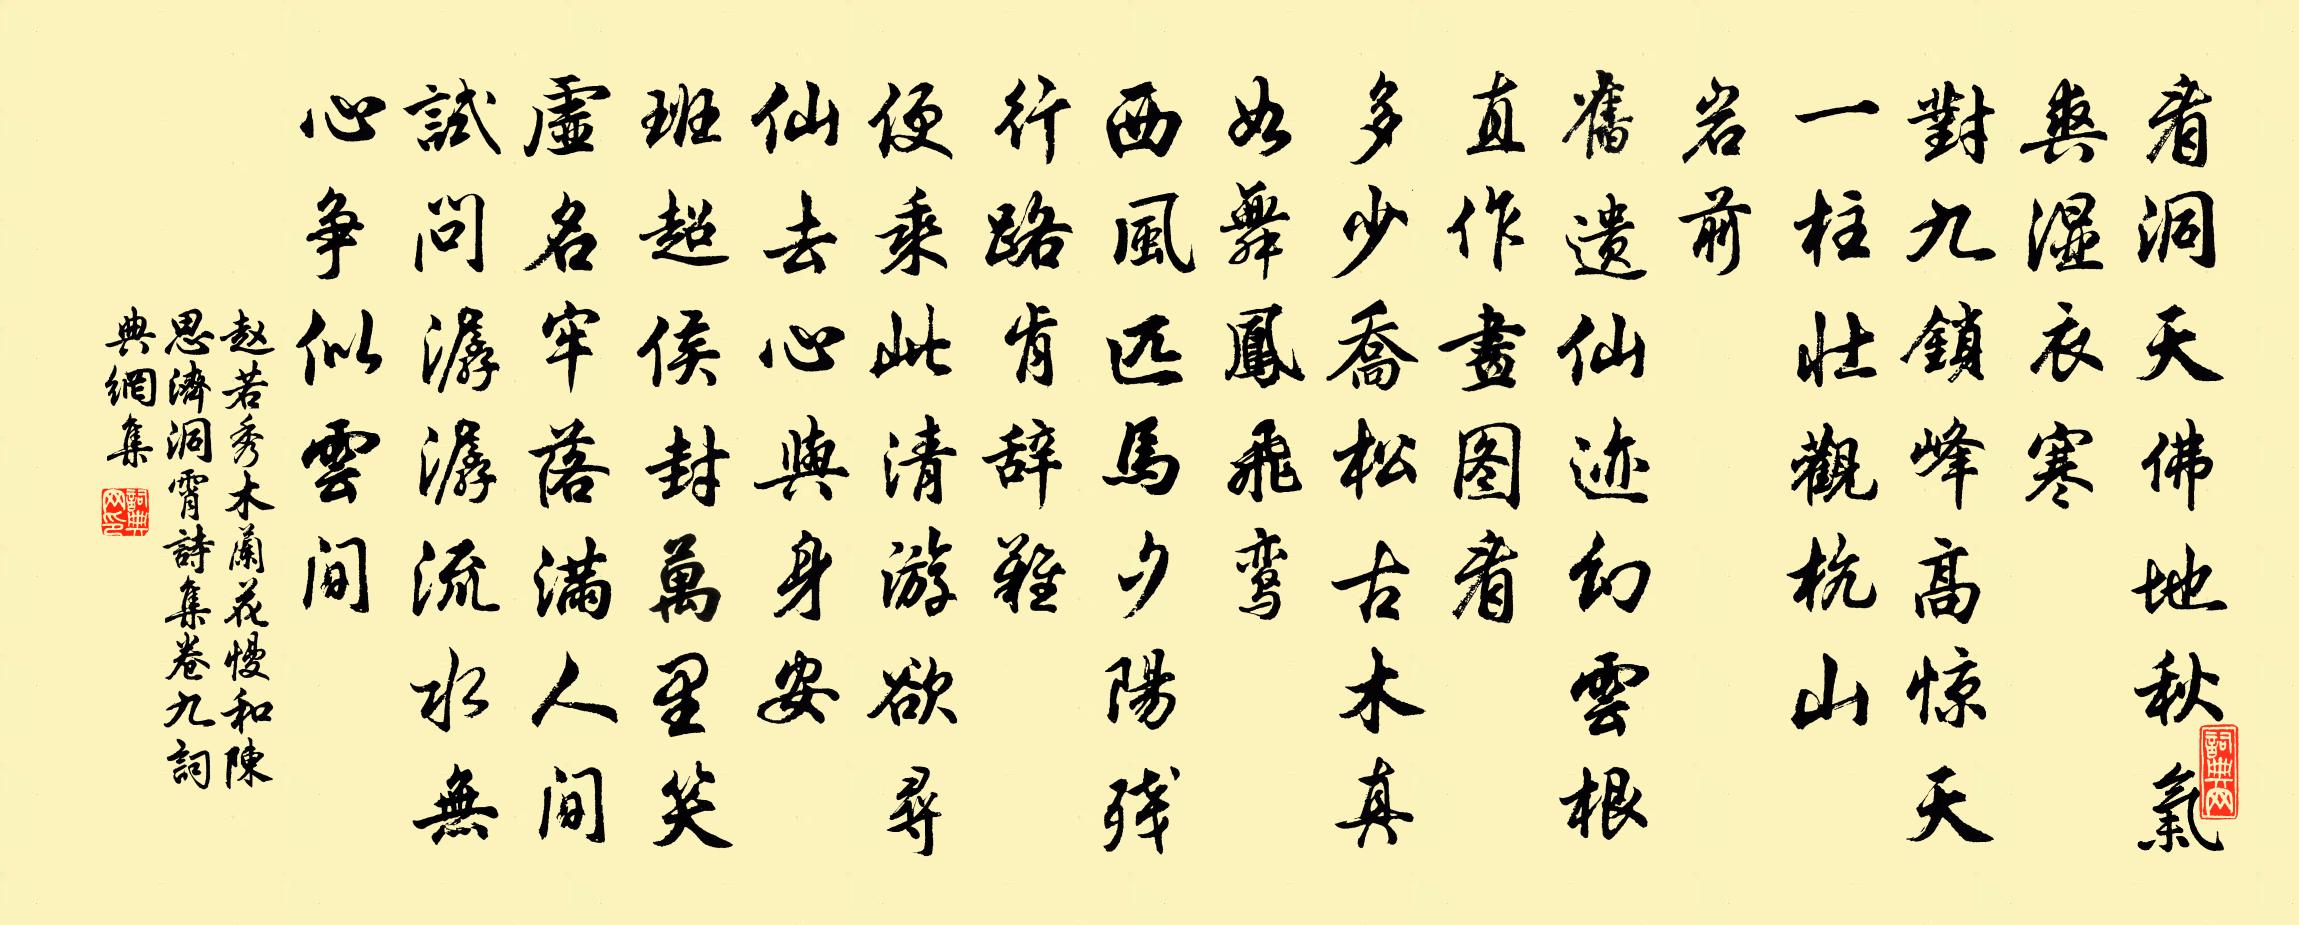 看洞天佛地秋氣
爽濕衣寒
對九鎖峰高惊天
一柱壮觀杭山
岩前
舊遗仙迹幻雲根
直作畫图看
多少喬松古木真
如舞鳳飛鸾
西風匹馬夕陽残
行路肯辞難
便乘此清游欲尋
仙去心與身安
班超侯封萬里笑
虛名牢落滿人间
試问潺潺流水無
心争似雲间
赵若秀木蘭花慢和陳
思濟洞霄詩集卷九詞
典網集
詞典网
詞典网印